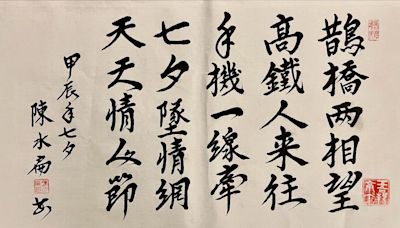 鵲橋两相望
高鐵人来往
手機一線牽
七夕墜情網
天天情人節
甲辰年七夕
陳水扁
書